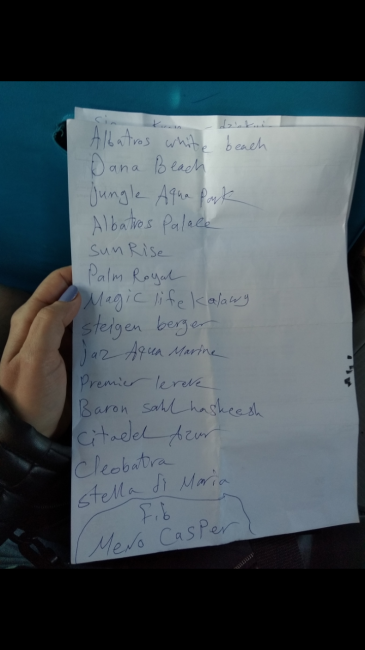 Albatros white beach
Dana Beach
jungle Aqua Park
Albatros Palace
SunRise
Palm Royal
Magic life Kalawy
steigen berger
jaz Aqua Marine
Premier lereve
Baron sahl hasheesh
Citadel Azur
Cleobatra
stella di Maria
Fib
Mero Casper